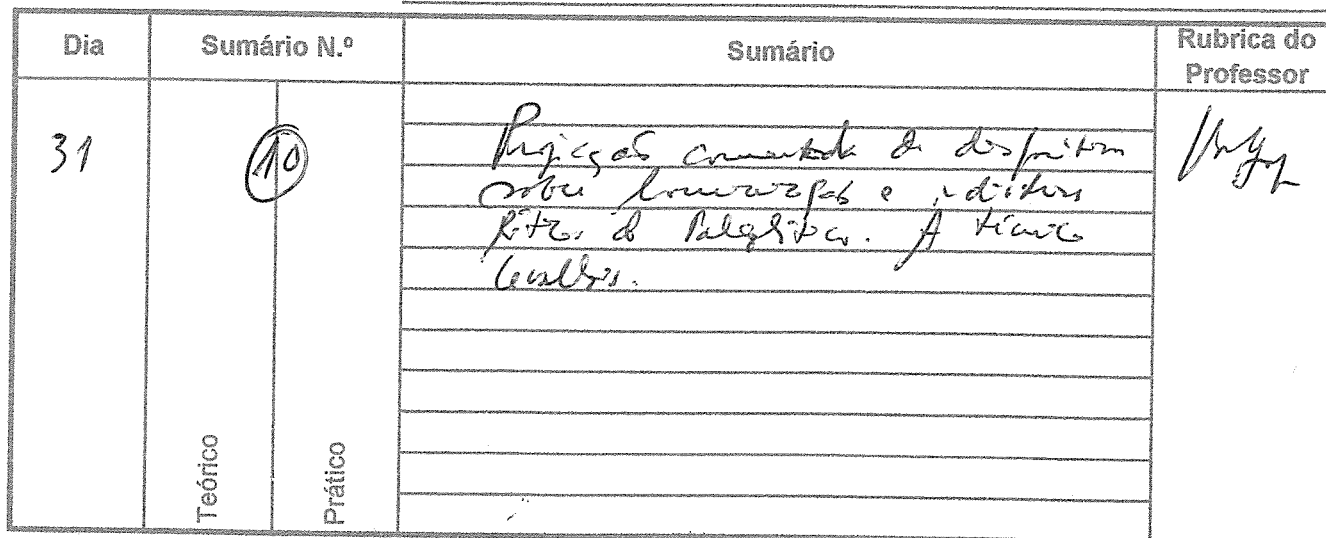 Dia
Sumário N.º
Sumário
Rubrica do
Professor
31
10
Projecção comentada de diapositivos
sobre e
do Paleolítico. A técnica
Levallois.
Teórico
Prático